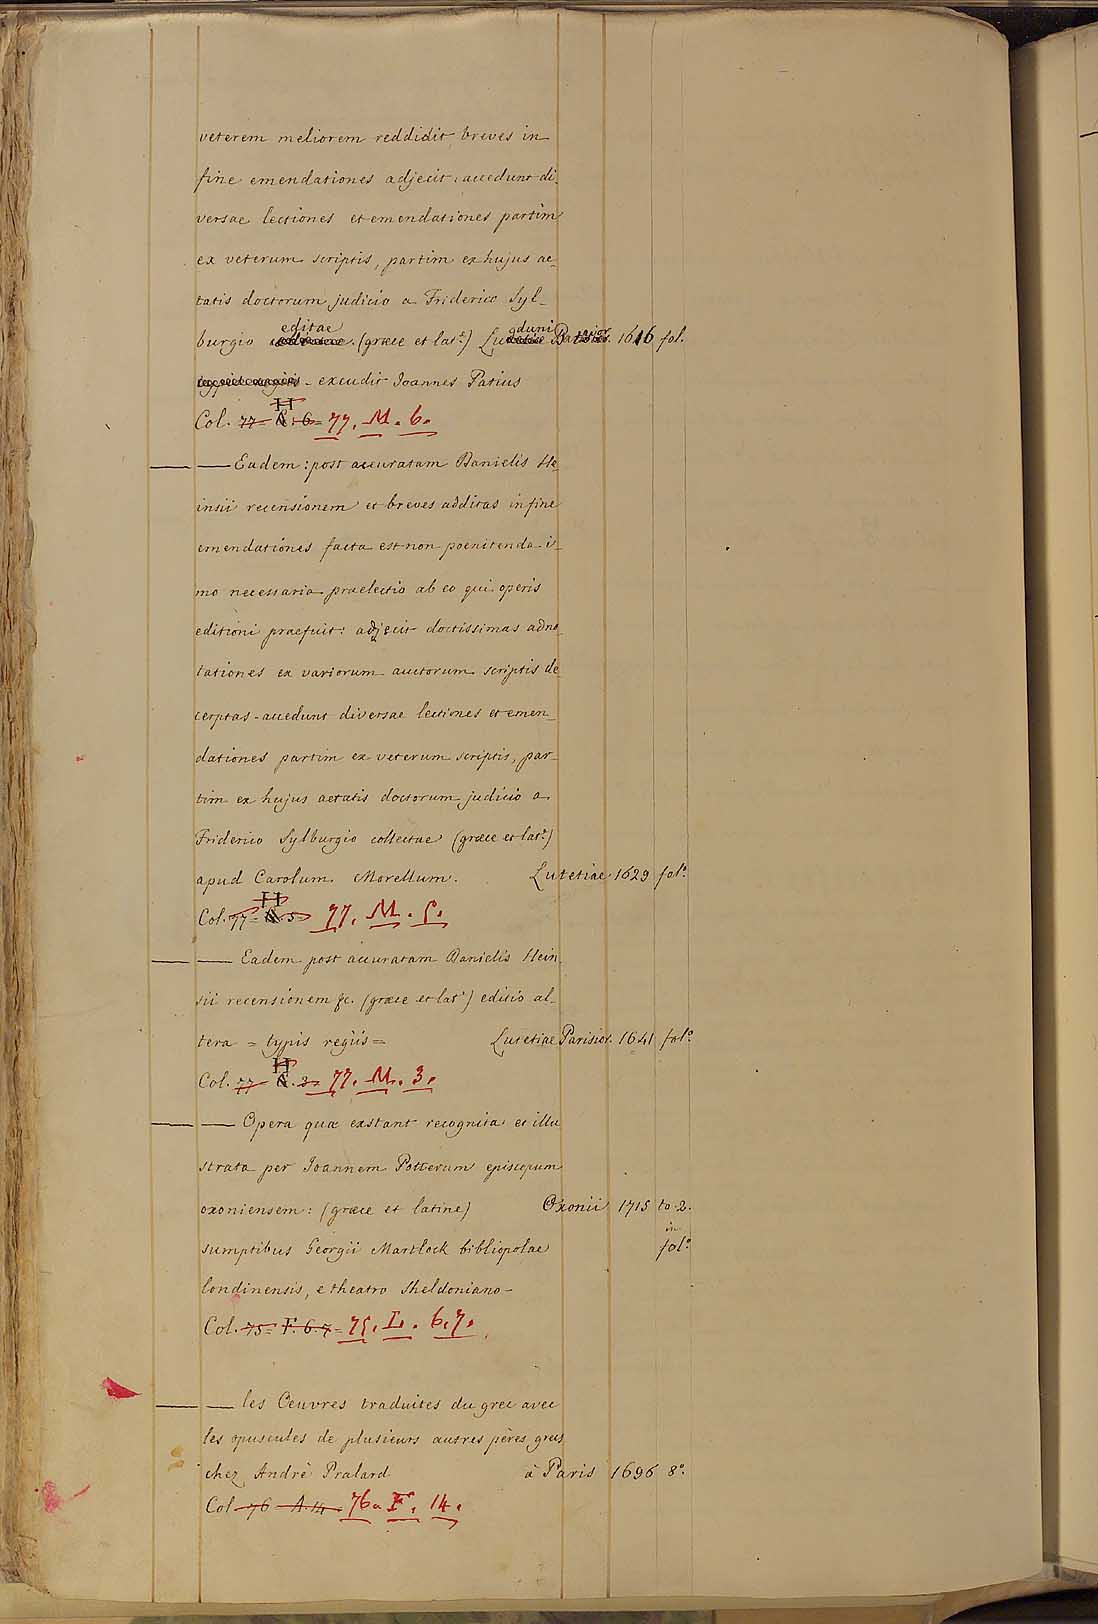 veterem meliorem reddidit, breves in
fine emendationes adjecit, accedunt di-
versae lectiones et emendationes partim
ex veterum scriptis, partim ex hujus ae-
tatis doctorum judicio a Friderico Syl-
burgio editae (græce et lat.e) Lugduni Batavor. 1616 fol.
excudit Joannes Patius
Col. 77 H. 6 77. M. 6.
— — Eadem: post accuratam Danielis He-
insii recensionem et breves additas in fine
emendationes facta est non poenitenda i-
mo necessaria praelectio ab eo qui operis
editioni praefuit: adjecit doctissimas adno-
tationes ex variorum auctorum scriptis de
cerptas - accedunt diversae lectiones et emen-
dationes partim ex veterum scriptis, par-
tim ex hujus aetatis doctorum judicio a
Friderico Sylburgio collectae (græce et lat.e)
apud Carolum Morellum. Lutetiae 1629 fol.o
Col. 77 = H. 5 = 77. M. 5.
— — Eadem post accuratam Danielis Hein
sii recensionem &c. (græce et lat.e) editio al-
tera = typis regiis = Lutetiae Parisior. 1641 fol.o
Col. 77 H. 3 = 77. M. 3.
— — Opera quæ exstant recognita et illu
strata per Joannem Potterum episcopum
oxoniensem: (græce et latine) Oxonii 1715 to. 2.
in
sumptibus Georgii Martlock bibliopolae fol.o
londinensis, e theatro Sheldoniano -
Col. 75 = F. 6. 7 = 75. I. 6. 7.
— — les Oeuvres traduites du grec avec
les opuscules de plusieurs autres pères grecs
chez Andrè Pralard à Paris 1696 8.o
Col 76 A. 14 76. F. 14.